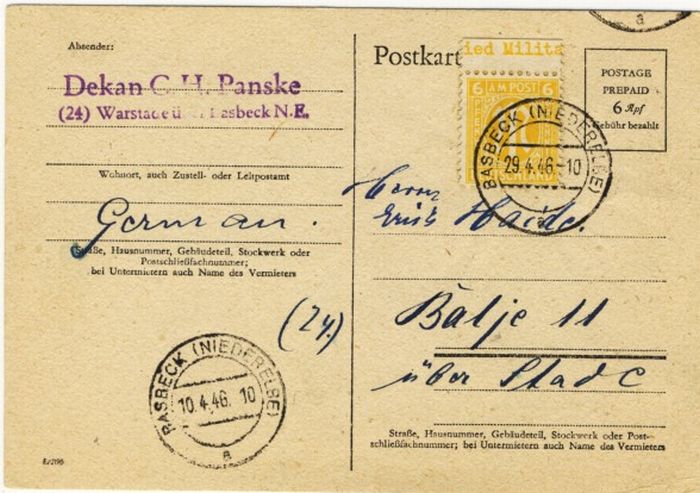 Absender:
Dekan C. H. Panske
(24) Warstade ü Basbeck N.E.
Wohnort, auch Zustell- oder Leitpostamt
German.
Straße, Hausnummer, Gebäudeteil, Stockwerk oder
Postschließfachnummer;
bei Untermietern auch Name des Vermieters
(24.)
BASBECK (NIEDERELBE)
10.4.46. 10
a
Postkart
ied Milita
6 AM POST 6
SCHLAND
BASBECK (NIEDERELBE)
29.4.46.-10
a
POSTAGE
PREPAID
6 Rpf
Gebühr bezahlt
Herrn
Erich Haide.
Balje 11
über Stade
Straße, Hausnummer, Gebäudeteil, Stockwerk oder Post-
schließfachnummer; bei Untermietern auch Name des Vermieters